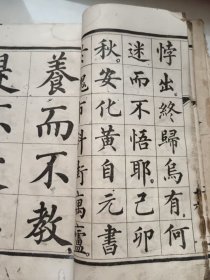 悖出、終歸烏有、何
迷而不悟耶。己卯
秋、安化黄自元書
寓廬。
養而不教